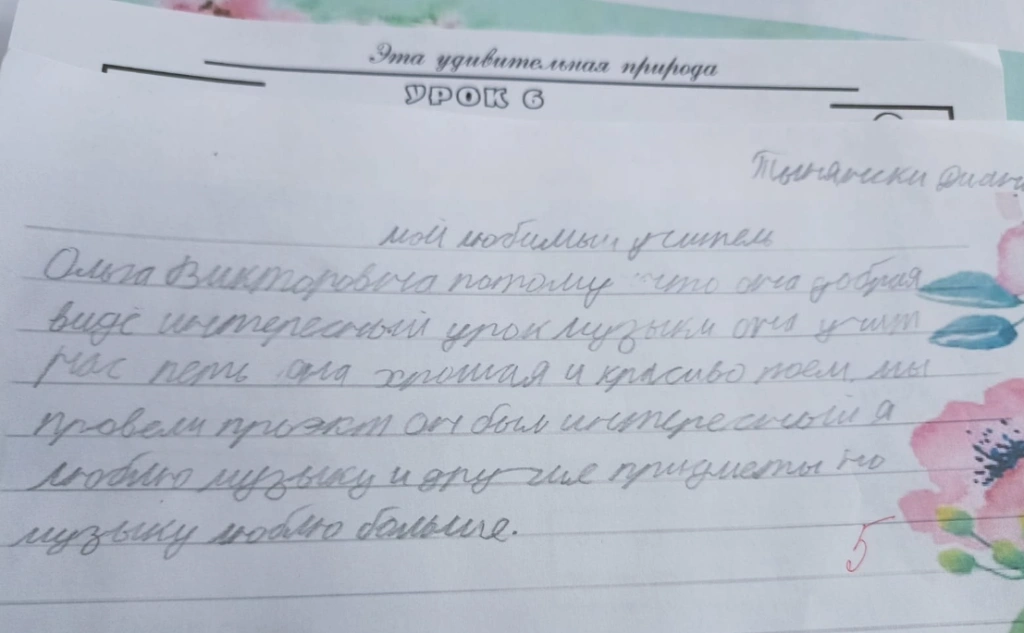 Эта удивительная природа
УРОК 6
мой любимый учитель
Ольга Викторовна потому что она добрая
видё интересный урок музыки она учит
нас петь она хрошая и красиво поем мы
провели проэкт он был интересный я
люблю музыку и другие придметы но
музыку люблю больше.
5